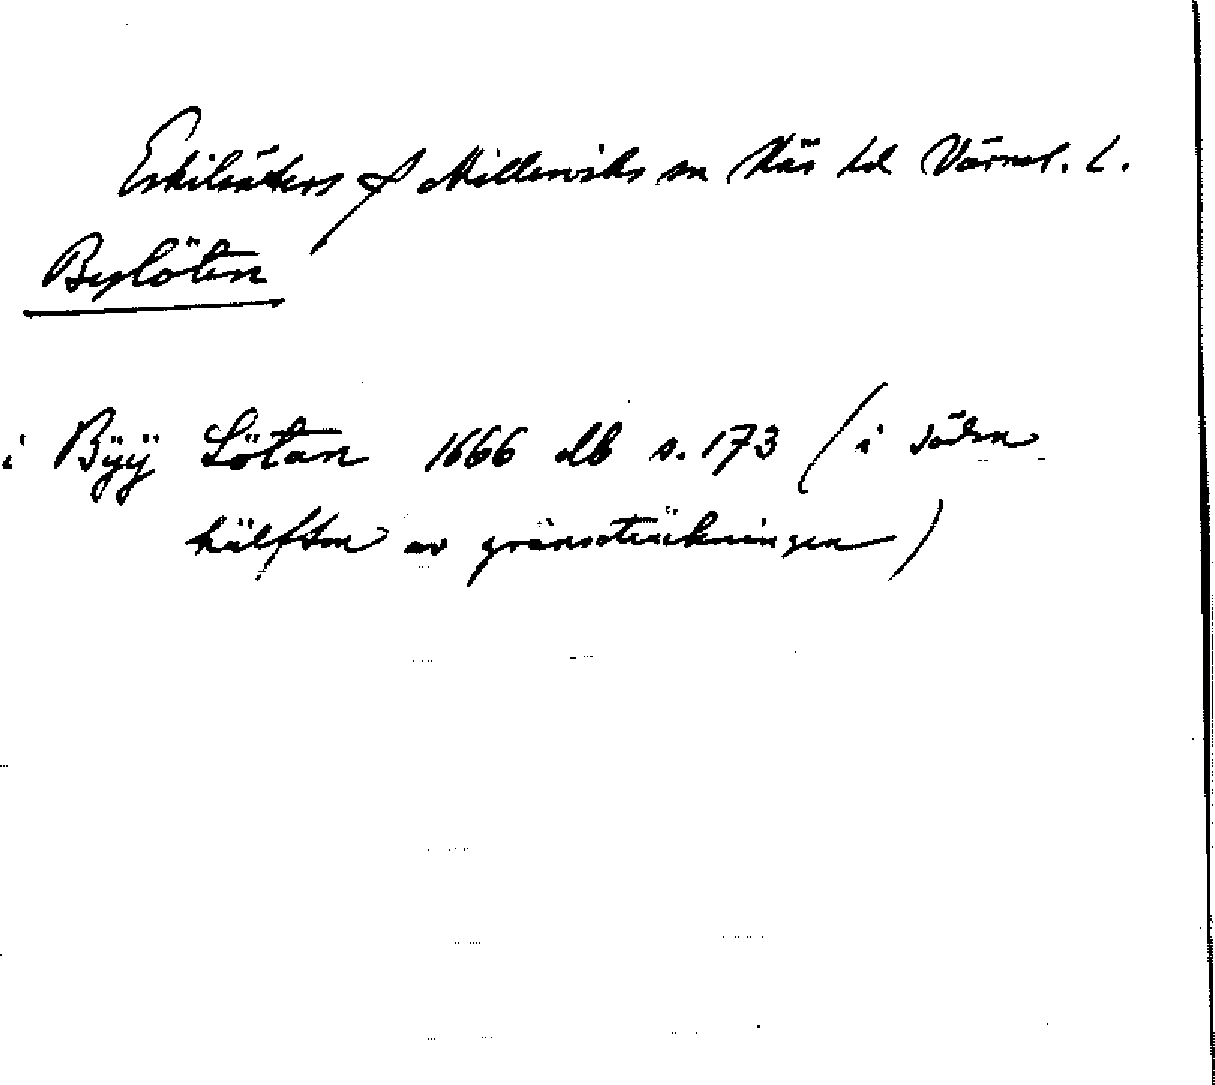 Eskilsäters o Millesviks sn Näs hd Värml. l.
Bylöten
i Bÿÿ Lötan 1666 db s. 173 (i södra
hälften av gränssträckningen)